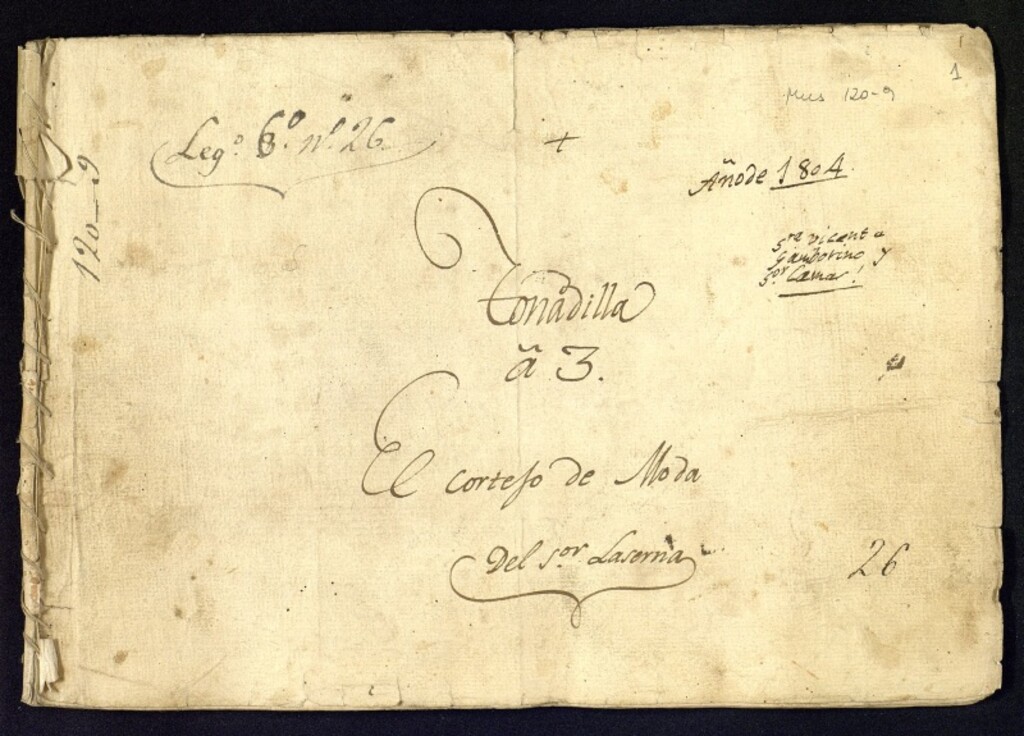 1
Mus 120-9
Leg.º 8.º n.º 26.
+
Año de 1804.
120-9
Sra vicenta
Gamborino y
Sor Camas!
Tonadilla
â 3.
El cortejo de Moda
Del s.or Laserna
26